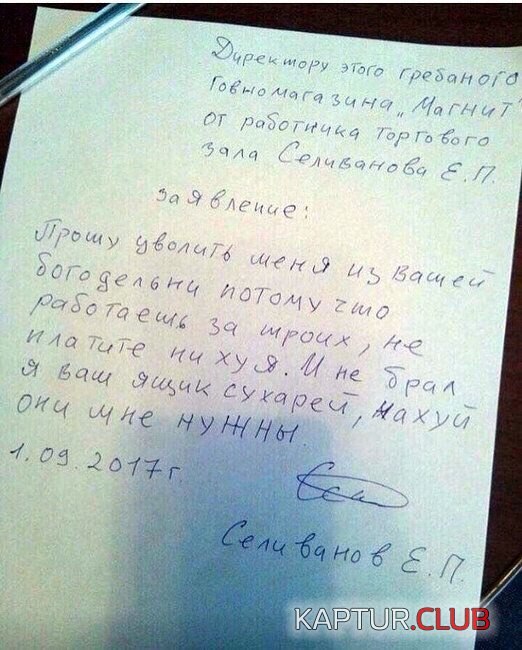 Директору этого гребаного
Говномагазина „Магнит"
от работника торгового
зала Селиванова Е.П.
заявление:
Прошу уволить меня из вашей
богодельни потому что
работаешь за троих, не
платите ни хуя. И не брал
я ваш ящик сухарей, нахуй
они мне нужны.
1.09.2017г.
Селиванов Е.П.
KAPTUR.CLUB